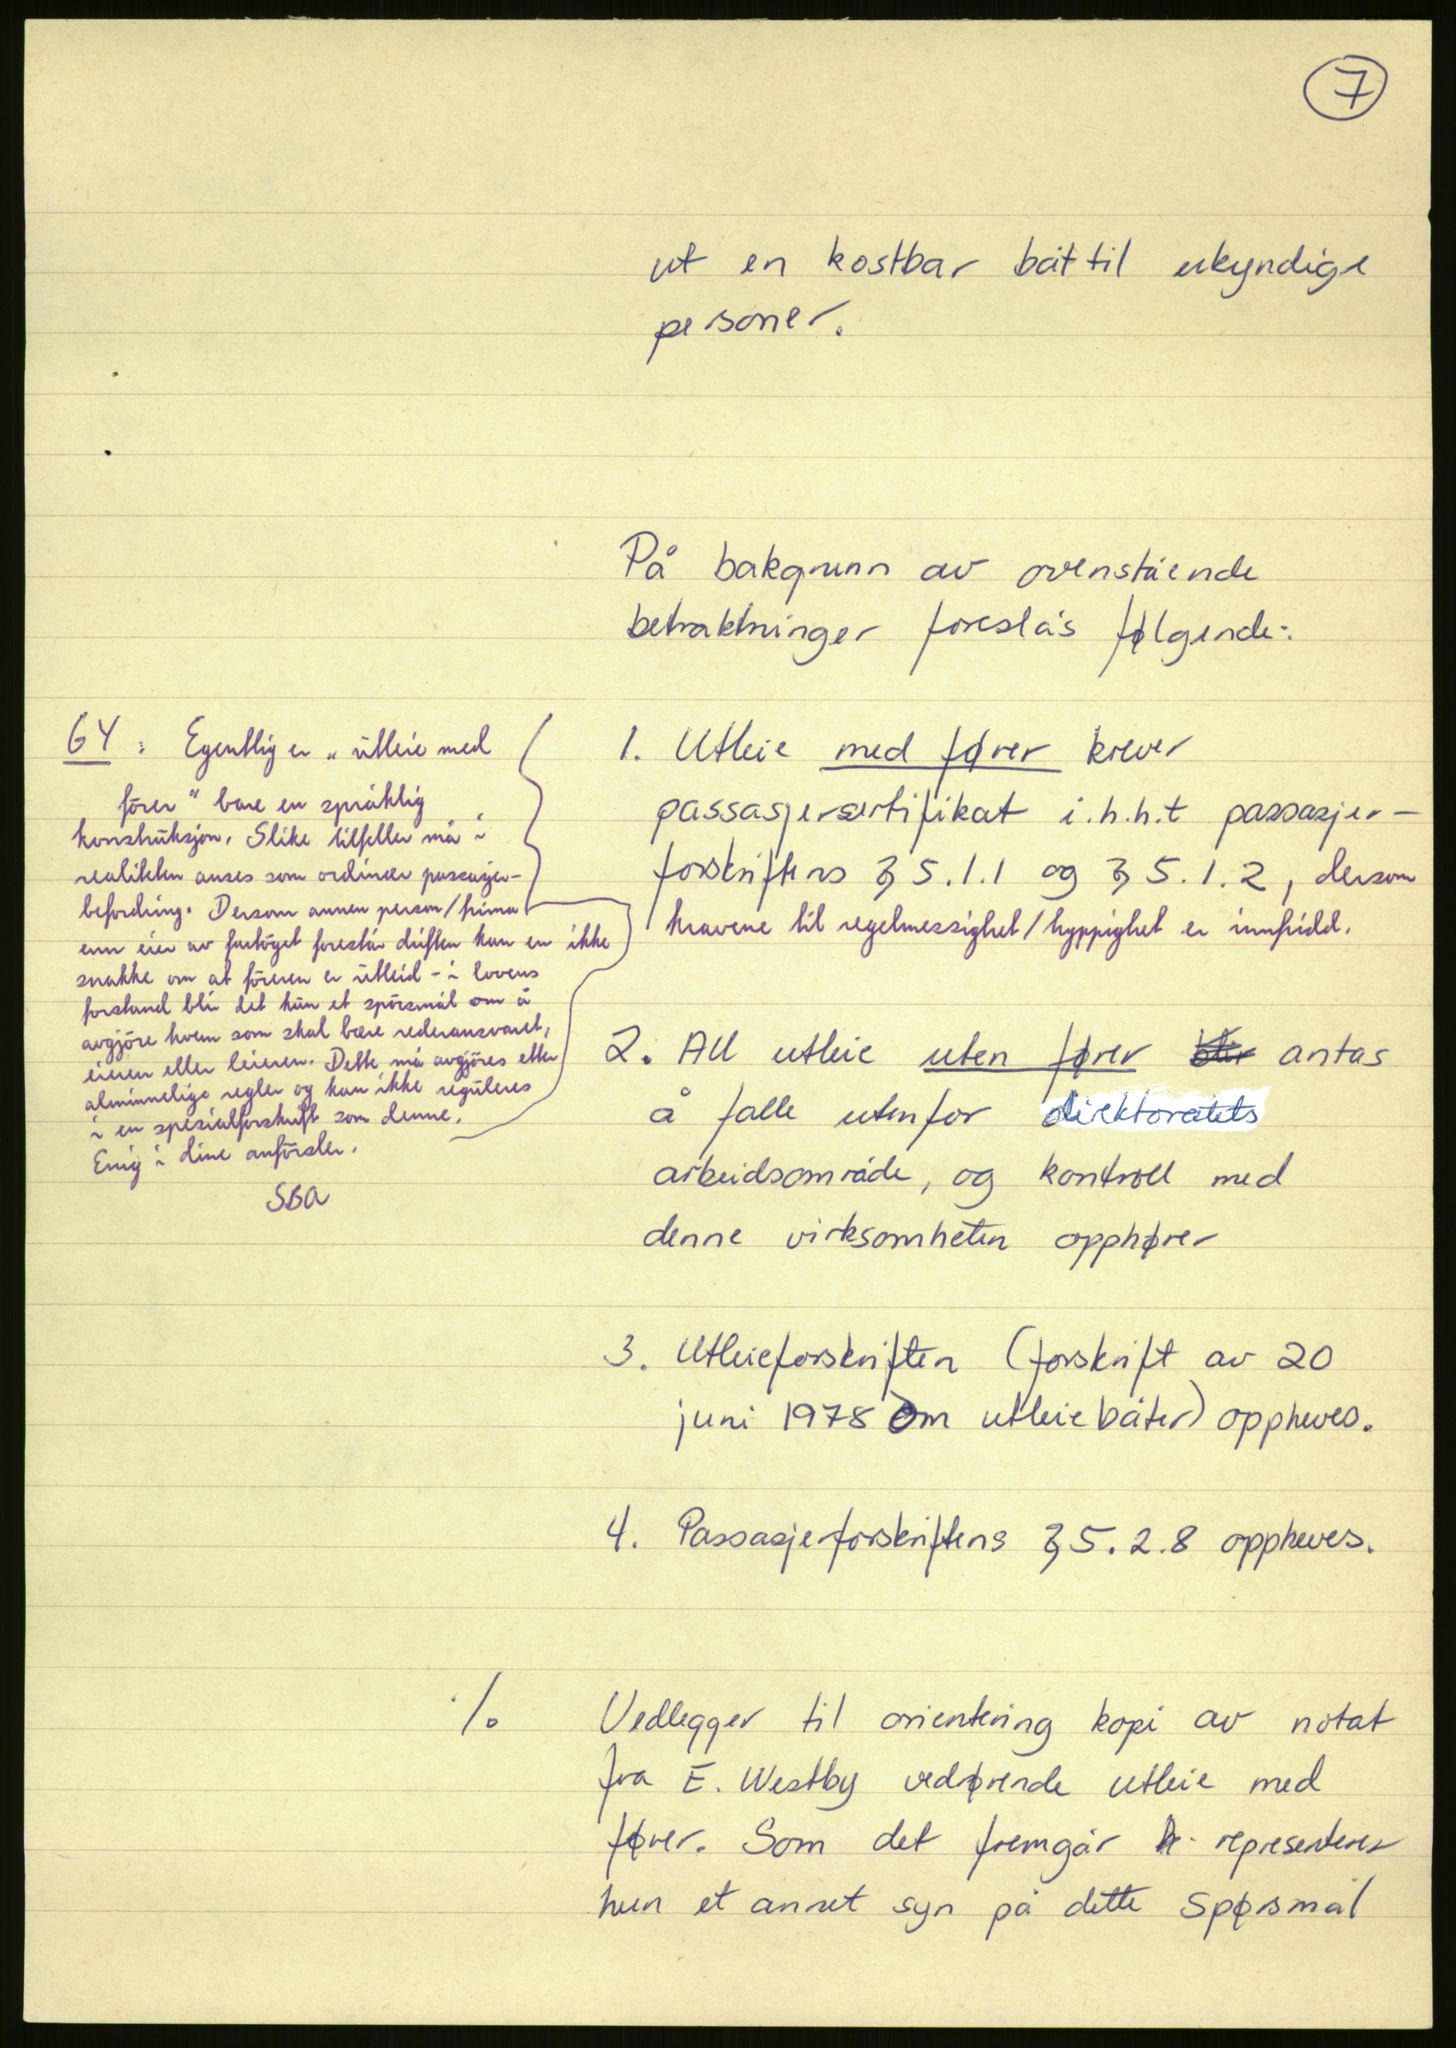 7
ut en kostbar båt til ukyndige
personer.
På bakgrunn av ovenstående
betraktninger foreslås følgende:
GY: Egentlig er „utleie med
fører" bare en språklig
konstruksjon. Slike tilfeller må i
realiteten anses som ordinær passasjer-
befordring. Dersom annen person/firma
enn eier av fartøyet forestår driften kan en ikke
snakke om at føreren er utleid - i lovens
forstand blir det kun et spørsmål om å
avgjøre hvem som skal bære rederansvaret,
eieren eller leieren. Dette må avgjøres etter
alminnelige regler og kan ikke reguleres
i en spesialforskrift som denne.
Enig i dine anførsler.
SBA
1. Utleie med fører krever
passasjersertifikat i.h.h.t passasjer-
forskriftens § 5.1.1 og § 5.1.2, dersom
kravene til regelmessighet/hyppighet er innfridd.
2. All utleie uten fører antas
å falle utenfor direktoratets
arbeidsområde, og kontroll med
denne virksomheten opphører
3. Utleieforskriften (forskrift av 20
juni 1978 om utleiebåter) oppheves.
4. Passasjerforskriftens § 5.2.8 oppheves.
./. Vedlegger til orientering kopi av notat
fra E. Westby vedrørende utleie med
fører. Som det fremgår representerer
hun et annet syn på dette spørsmål